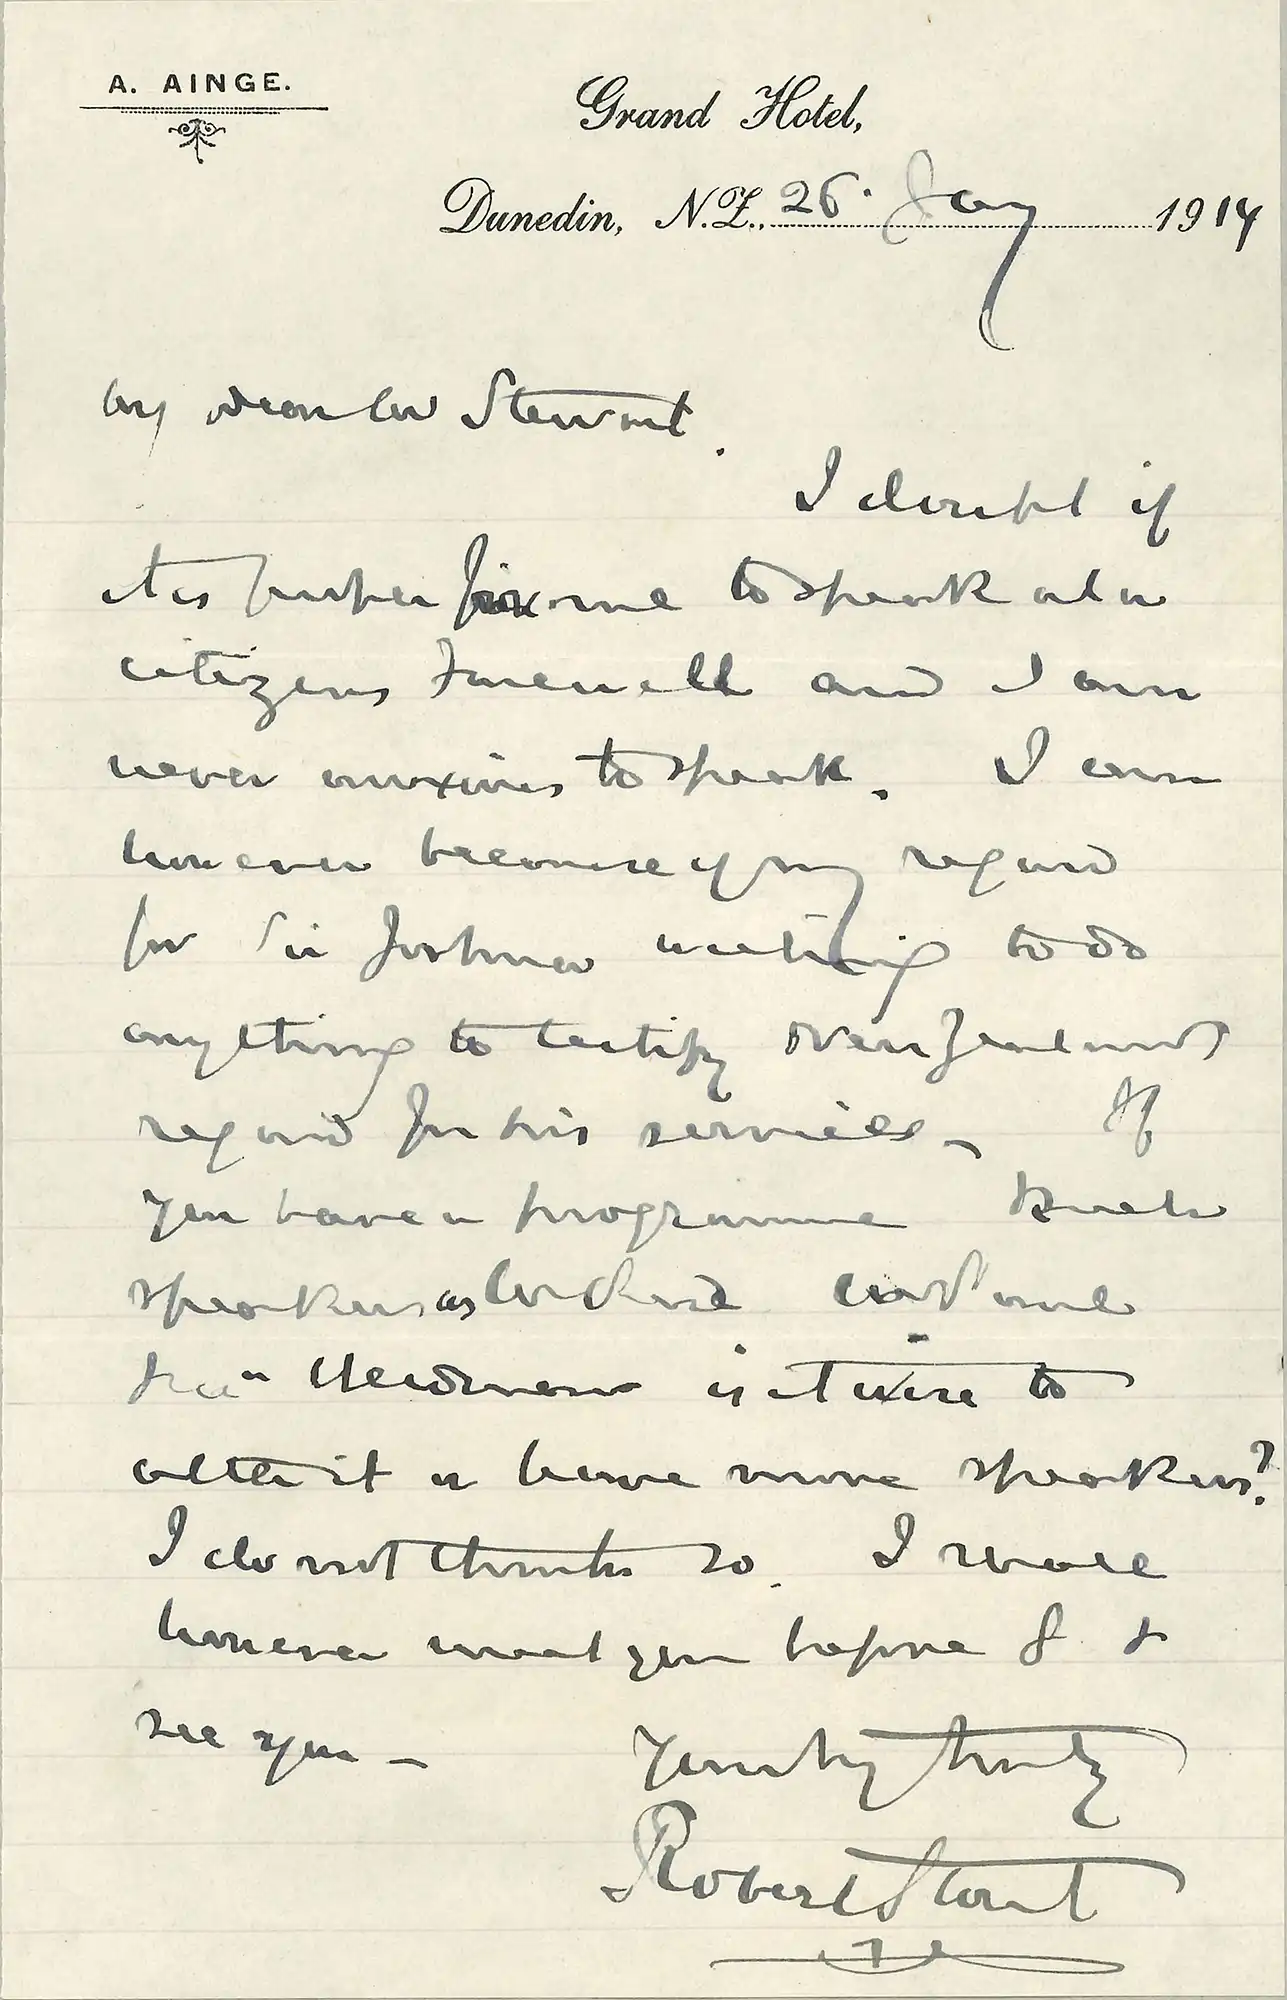 A. AINGE.
Grand Hotel,
Dunedin, N.Z., 26. Jany 1914
My dear Mr Stewart.
I doubt if
it is proper for me to speak at a
citizens farewell and I am
never anxious to speak. I am
however because of my regard
for Sir Joshua willing to do
anything to testify New Zealands
regard for his services – If
you have a programme such
speakers as and
is it wise to
alter it or have more speakers?
I do not think so. I shall
however meet you before 8 &
see you –
Yours truly
Robert Stout